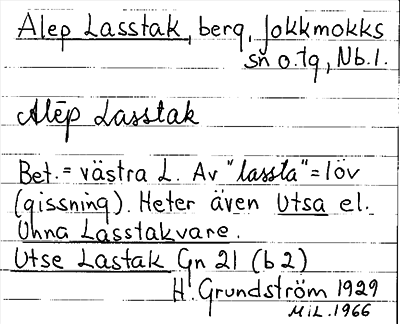 Alep Lasstak, berg, Jokkmokks
sn o. tg, Nb. l.
Alēp Lasstak
Bet. = västra L. Av "lassta" = löv
(gissning). Heter även Utsa el.
Uhna Lasstakvare.
Utse Lastak Gn 21 (b 2)
H. Grundström 1929
MiL. 1966